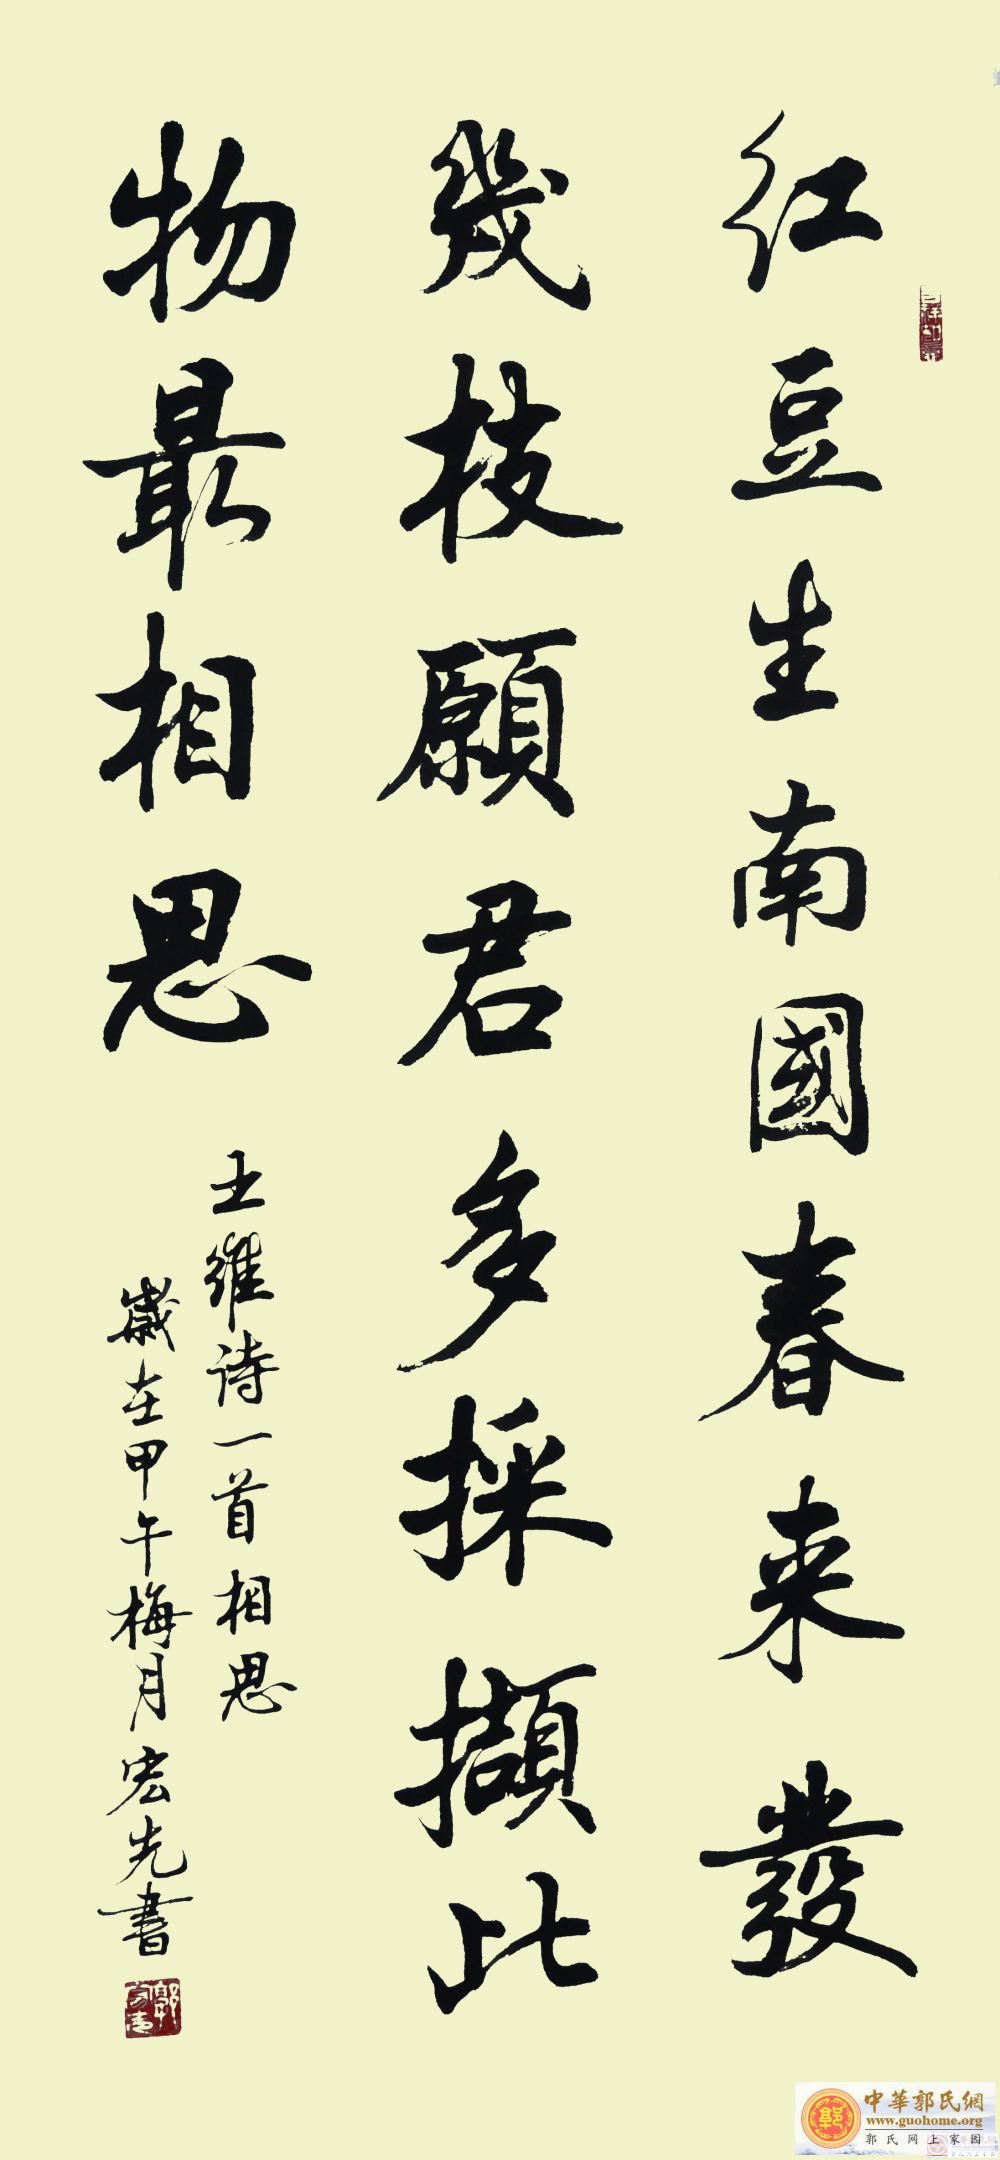 红豆生南國春来發
幾枝願君多採擷此
物最相思
王维诗一首相思
歲在甲午梅月宏光書
中華郭氏網
www.guohome.org
郭氏网上家园